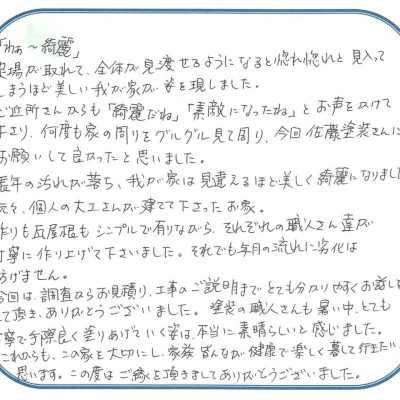 「わぁ〜綺麗」
足場が取れて、全体が見渡せるようになると惚れ惚れと見入って
しまうほど美しい我が家が姿を現しました。
ご近所さんからも「綺麗だね」「素敵になったね」とお声をかけて
下さり、何度も家の周りをグルグル見て周り、今回佐藤塗装さんに
お願いして良かったと思いました。
長年の汚れが落ち、我が家は見違えるほど美しく綺麗になりました
元々、個人の大工さんが建てて下さったお家。
作りも瓦屋根もシンプルで有りながら、それぞれの職人さん達が
丁寧に作り上げて下さいました。それでも年月の流れに劣化は
防げません。
今回は、調査からお見積り、工事のご説明までとても分かりやすくお話し
して頂き、ありがとうございました。塗装の職人さんも暑い中、とても
丁寧で手際良く塗りあげていく姿は、本当に素晴らしいと感じました。
これからも、この家を大切にし、家族皆んなが健康で楽しく暮して行きたい
と思います。この度はご縁を頂きましてありがとうございました。